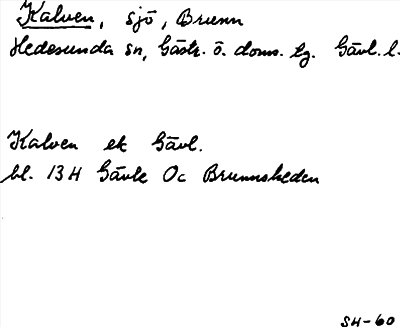 Kalven, sjö, Brunn
Hedesunda sn, Gästr. ö. doms. tg. Gävl. l.
Kalven ek Gävl.
bl. 13 H Gävle Oc Brunnsheden
SH-60